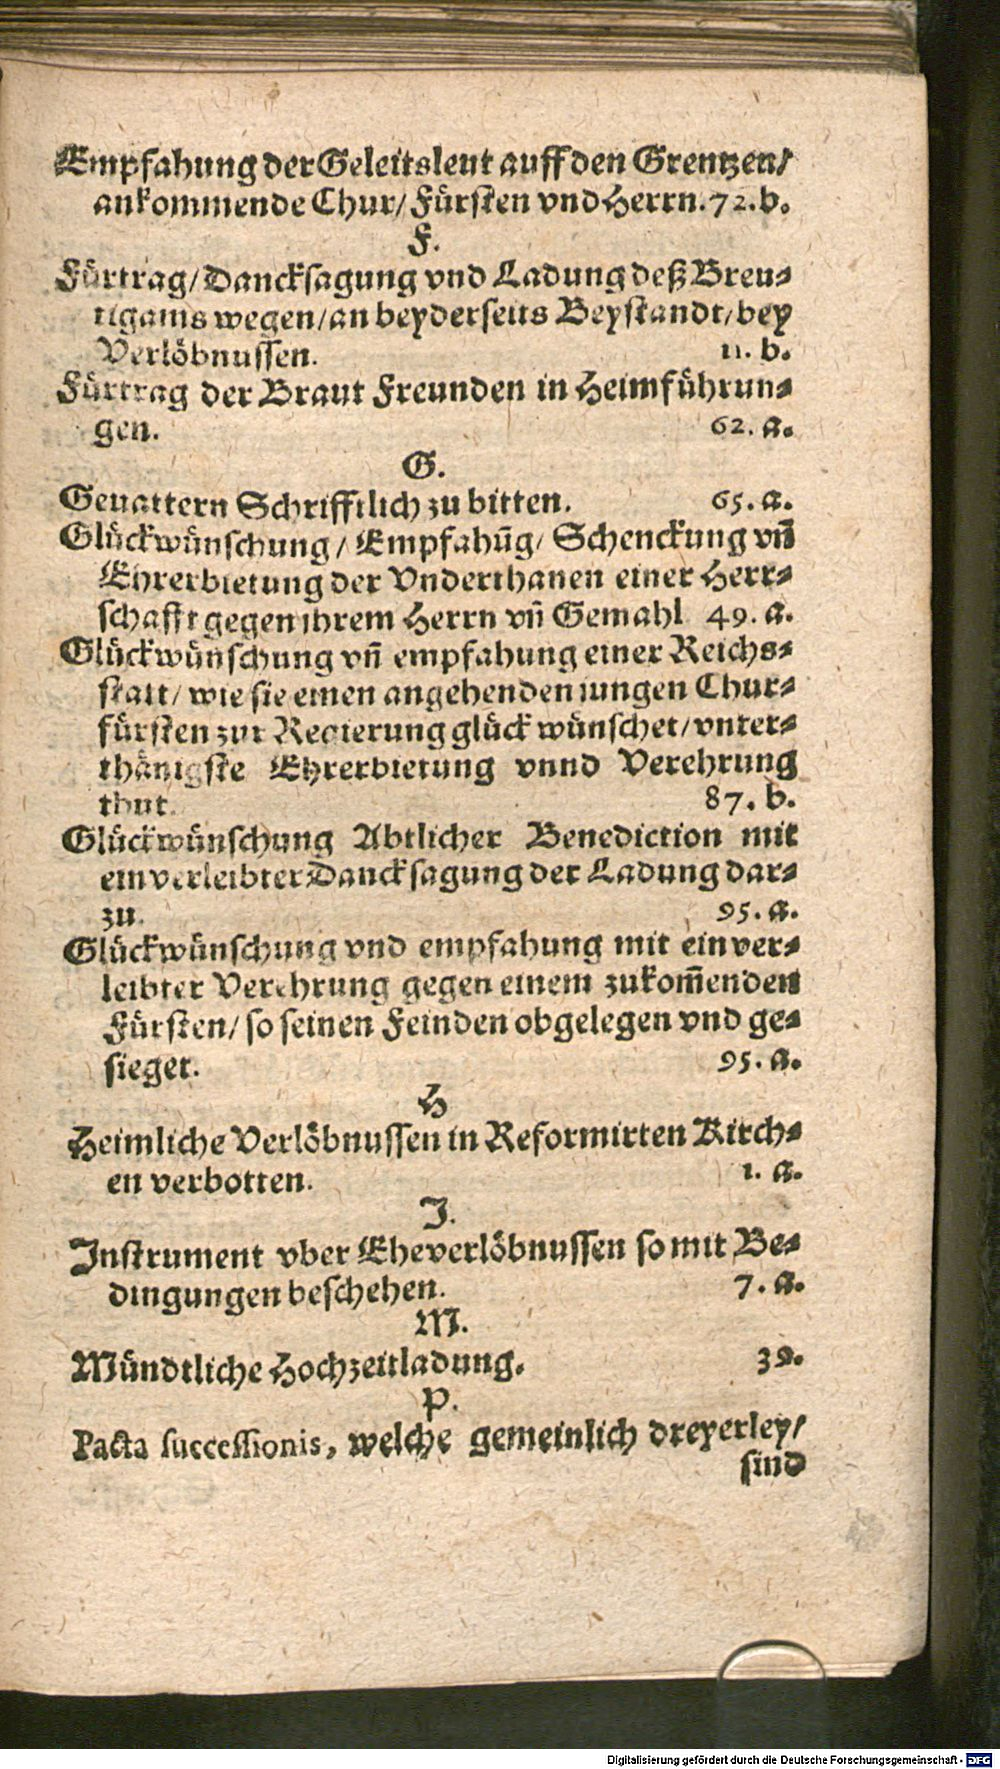 Empfahung der Geleitsleut auff den Grentzen/
ankommende Chur/ Fürsten vnd Herrn. 72. b.
F.
Fürtrag/ Dancksagung vnd Ladung deß Breu-
tigams wegen/ an beyderseits Beystandt/ bey
Verlöbnussen. 11. b.
Fürtrag der Braut Freunden in Heimführun-
gen. 62. a.
G.
Geuattern Schrifftlich zu bitten. 65. a.
Glückwünschung/ Empfahūg/ Schenckung vñ
Ehrerbietung der Vnderthanen einer Herr-
schafft gegen ihrem Herrn vñ Gemahl 49. a.
Glückwünschung vñ empfahung einer Reichs-
statt/ wie sie einen angehenden iungen Chur-
fürsten zur Regierung glück wünschet/ vnter-
thänigste Ehrerbietung vnnd Verehrung
thut. 87. b.
Glückwünschung Abtlicher Benediction mit
einverleibter Dancksagung der Ladung dar-
zu. 95. a.
Glückwünschung vnd empfahung mit einver-
leibter Verehrung gegen einem zukom̃enden
Fürsten/ so seinen Feinden obgelegen vnd ge-
sieget. 95. a.
H
Heimliche Verlöbnussen in Reformirten Kirch-
en verbotten. 1. a.
J.
Instrument vber Eheverlöbnussen so mit Be-
dingungen beschehen. 7. a.
M.
Mündtliche Hochzeitladung. 39.
P.
Pacta successionis, welche gemeinlich dreyerley/
sind
Digitalisierung gefördert durch die Deutsche Forschungsgemeinschaft - DFG